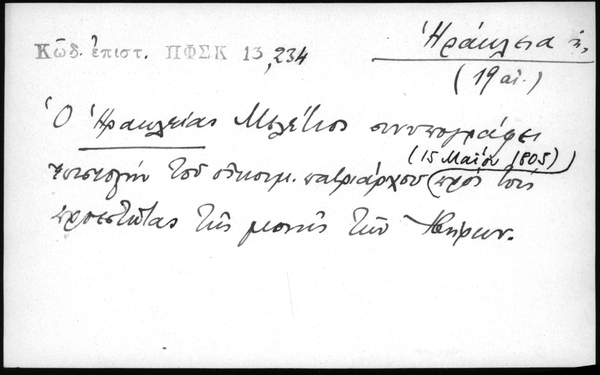 Κῶδ. ἐπιστ. ΠΦΣΚ 13,234
Ἡράκλεια ἡ,
(19 αἰ.)
Ὁ Ἡρακλείας Μελέτιος συνυπογράφει
(15 Μαΐου 1805)
ἐπιστολὴν τοῦ οἰκουμ. πατριάρχου πρὸς τοὺς
προεστῶτας τῆς μονῆς τῶν Ἰβήρων.